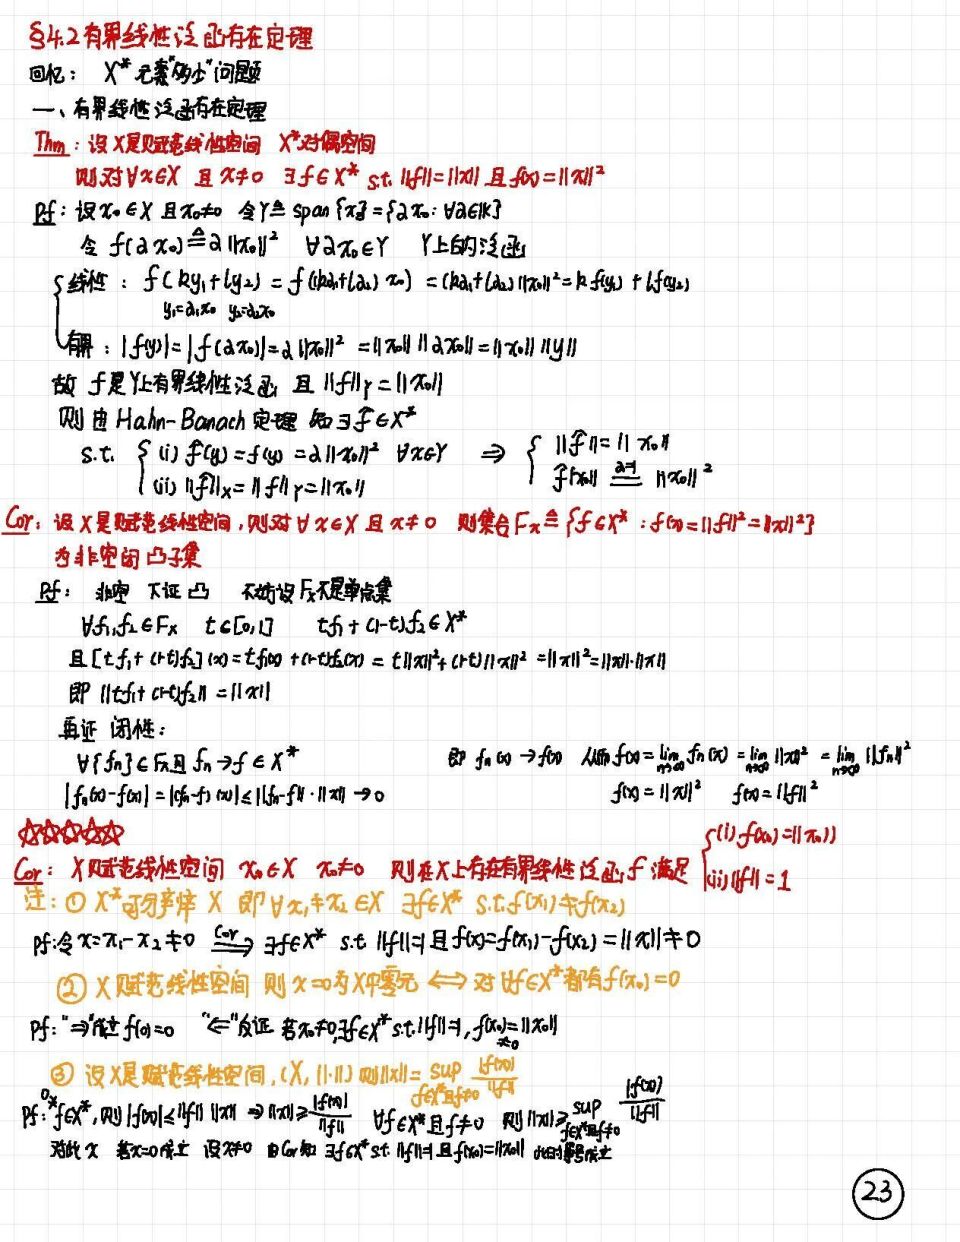 §4.2 有界线性泛函存在定理
回忆： X* 元素"多少"问题
一、有界线性泛函存在定理
Thm：设X是赋范线性空间 X*对偶空间
则对∀x∈X 且 x≠0 ∃f∈X* s.t. ||f||=||x|| 且 f(x)=||x||²
Pf：设x₀∈X 且x₀≠0 令Y≜span{x₀}={λx₀: ∀λ∈K}
令 f(λx₀)≜λ||x₀||² ∀λx₀∈Y Y上的泛函
线性：f(ky₁+ly₂)=f((kλ₁+lλ₂)x₀)=(kλ₁+lλ₂)||x₀||²=kf(y₁)+lf(y₂)
y₁=λ₁x₀ y₂=λ₂x₀
有界：|f(y)|=|f(λx₀)|=λ||x₀||²=||x₀|| ||λx₀||=||x₀|| ||y||
故 f是Y上有界线性泛函 且 ||f||_Y=||x₀||
则由Hahn-Banach定理 知∃f̃∈X*
s.t. { (i) f̃(y)=f(y)=λ||x₀||² ∀x∈Y ⇒ { ||f̃||=||x₀||
(ii) ||f̃||_X=||f||_Y=||x₀|| f̃(x₀) =(λ=1) ||x₀||²
Cor：设X是赋范线性空间，则对∀x∈X 且 x≠0 则集合Fₓ≜{f∈X*：f(x)=||f||²=||x||²}
为非空闭凸子集
Pf：非空 下证凸 不妨设Fₓ不是单点集
∀f₁,f₂∈Fₓ t∈[0,1] tf₁+(1-t)f₂∈X*
且[tf₁+(1-t)f₂](x)=tf₁(x)+(1-t)f₂(x)=t||x||²+(1-t)||x||²=||x||²=||x||·||x||
即 ||tf₁+(1-t)f₂||=||x||
再证 闭性：
∀{fₙ}∈Fₓ且 fₙ→f∈X* 即 fₙ(x)→f(x) 从而f(x)=lim_{n→∞}fₙ(x)=lim_{n→∞}||x||²=lim_{n→∞}||fₙ||²
|fₙ(x)-f(x)|=|(fₙ-f)(x)|≤||fₙ-f||·||x||→0 f(x)=||x||² f(x)=||f||²
☆☆☆☆☆
Cor：X赋范线性空间 x₀∈X x₀≠0 则在X上存在有界线性泛函f满足 { (i) f(x₀)=||x₀||
(ii) ||f||=1
注：① X*可分离 X 即∀x₁≠x₂∈X ∃f∈X* s.t. f(x₁)≠f(x₂)
Pf:令x=x₁-x₂≠0 ⇒(Cor) ∃f∈X* s.t ||f||=1且f(x)=f(x₁)-f(x₂)=||x||≠0
② X赋范线性空间 则x=0为X中零元 ⟺ 对∀f∈X*都有f(x₀)=0
Pf："⇒"成立 f(0)=0 "⇐"反证 若x₀≠0,∃f∈X* s.t.||f||=1, f(x₀)=||x₀||≠0
③ 设X是赋范线性空间, (X,||·||) 则||x||=sup_{f∈X*且f≠0} |f(x)|/||f||
Pf：0≠f∈X*, 则|f(x)|≤||f|| ||x|| ⇒||x||≥|f(x)|/||f|| ∀f∈X*且f≠0 则||x||≥sup_{f∈X*且f≠0} |f(x)|/||f||
对此x 若x=0成立 设x≠0 由Cor知 ∃f∈X* s.t. ||f||=1且f(x₀)=||x₀|| 此时等号成立
23